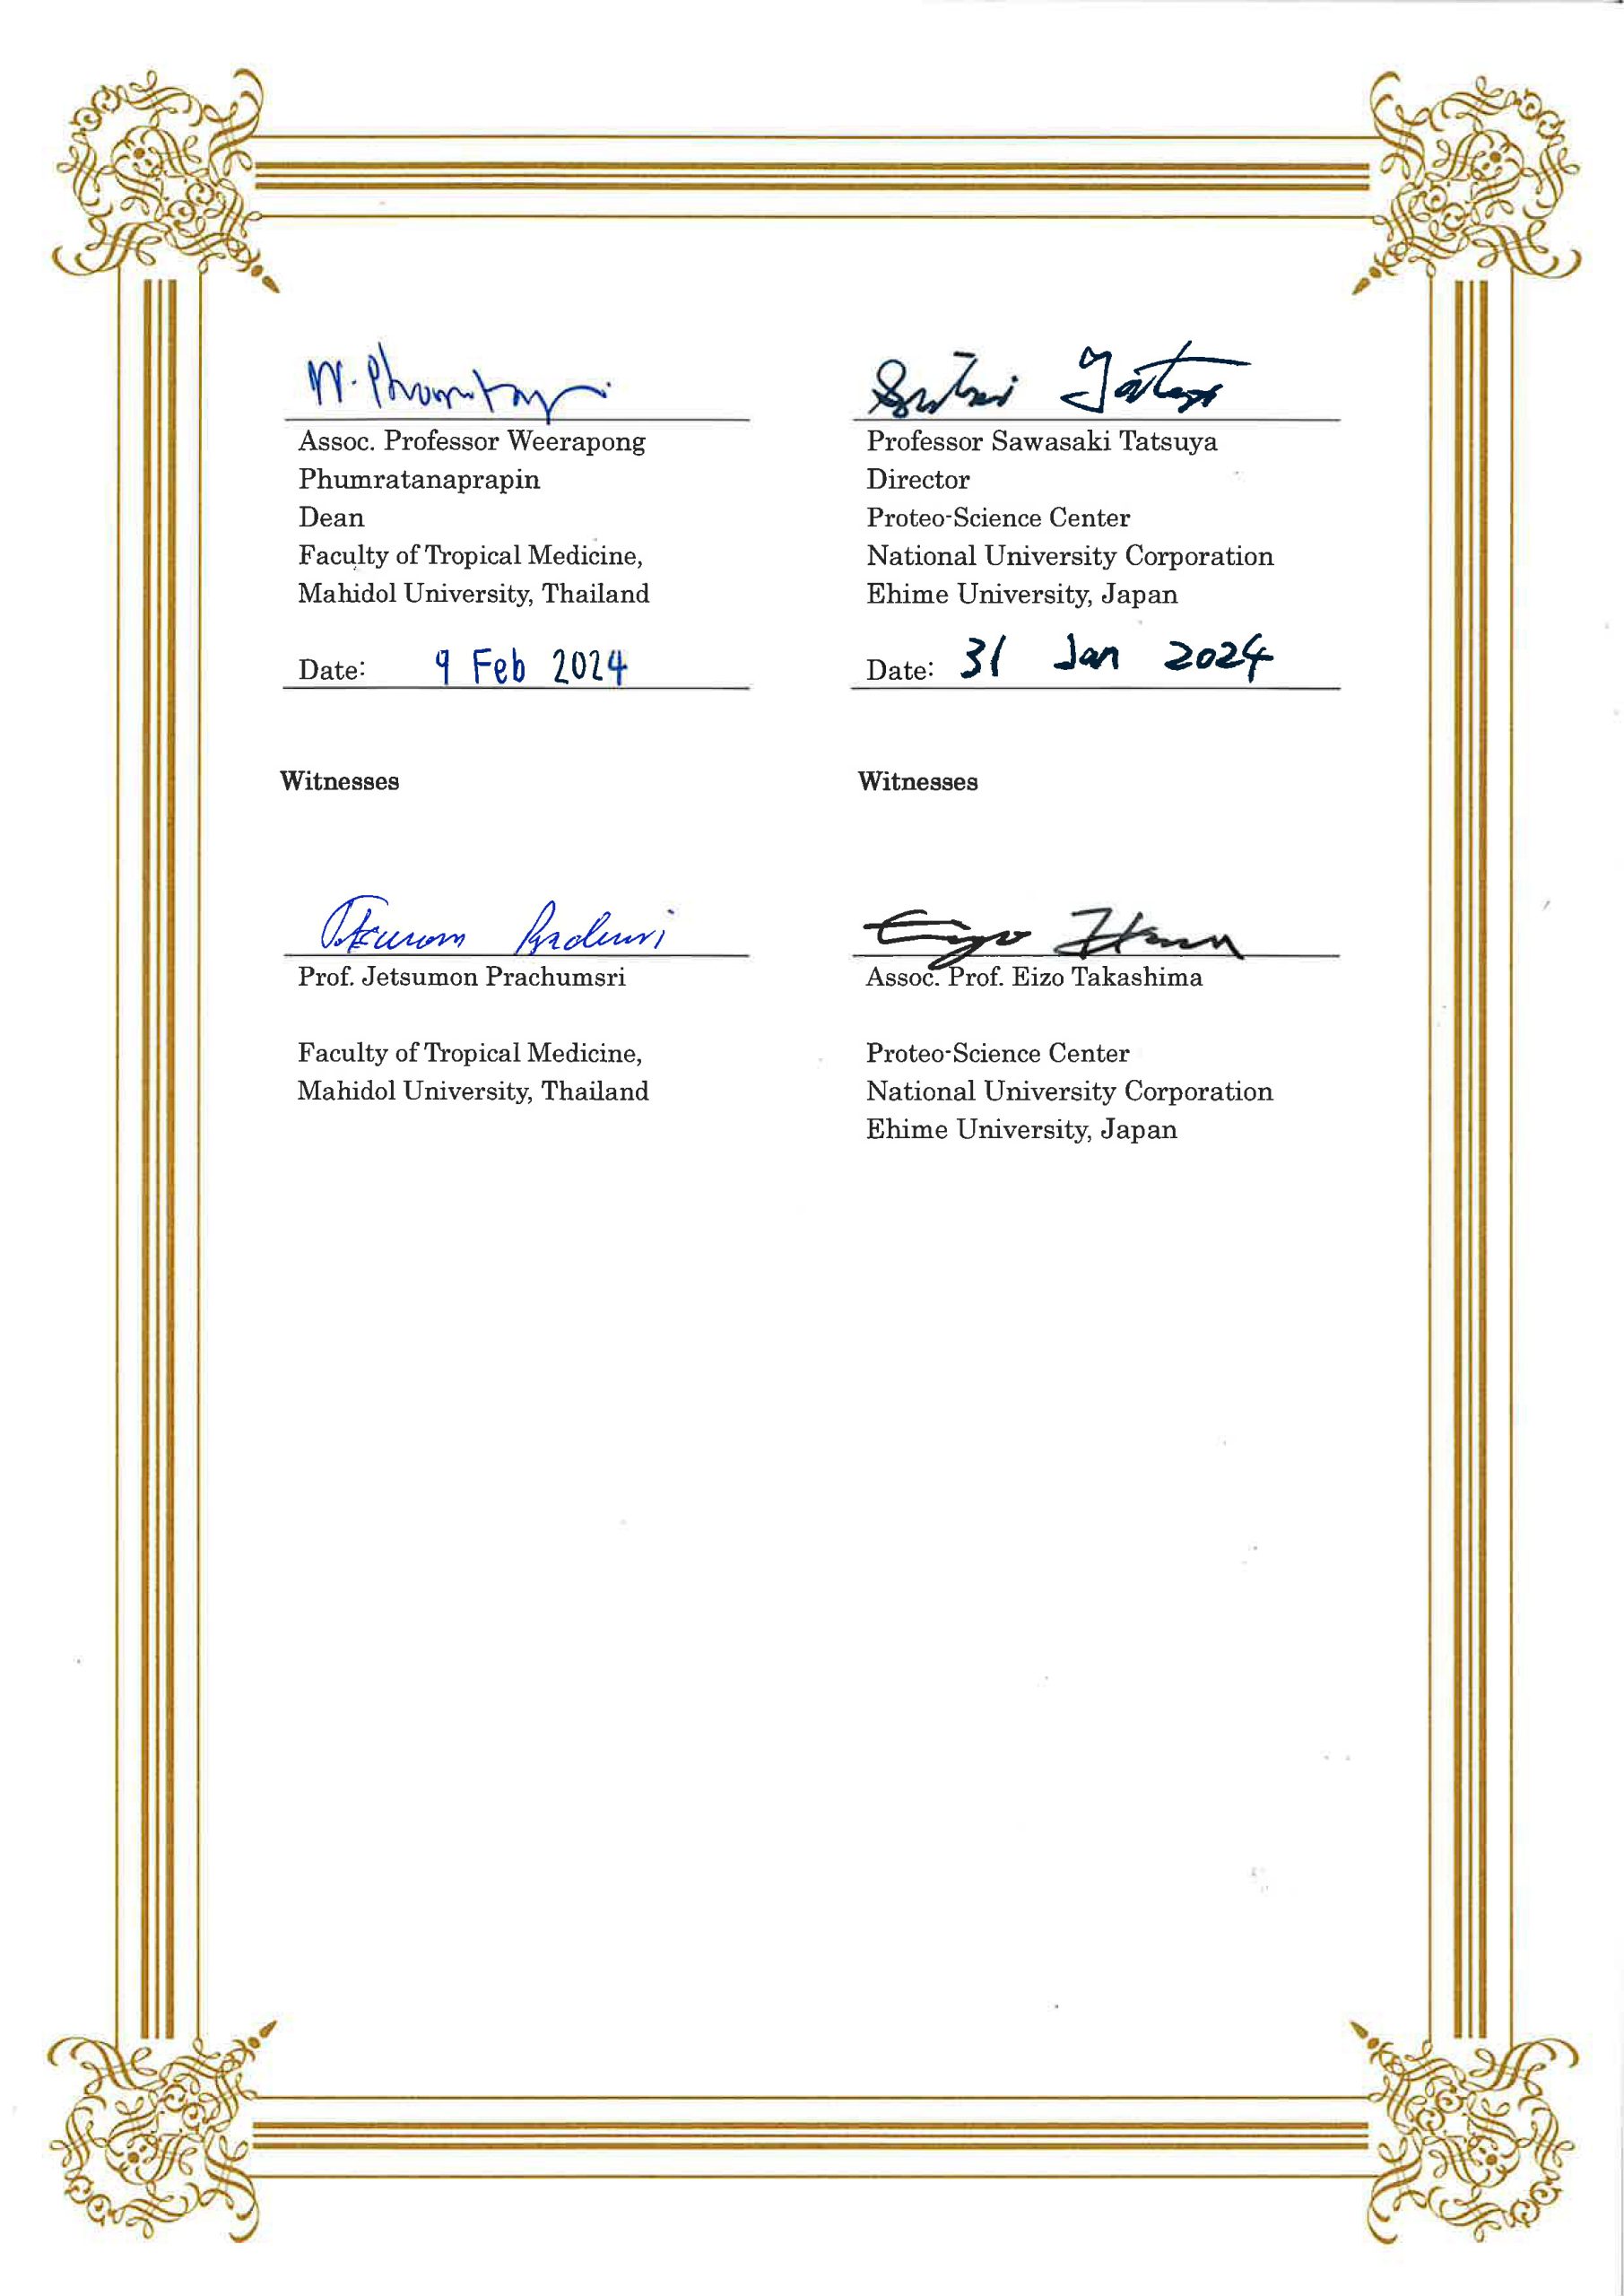 Assoc. Professor Weerapong
Phumratanaprapin
Dean
Faculty of Tropical Medicine,
Mahidol University, Thailand
Date: 9 Feb 2024
Professor Sawasaki Tatsuya
Director
Proteo-Science Center
National University Corporation
Ehime University, Japan
Date: 31 Jan 2024
Witnesses
Prof. Jetsumon Prachumsri
Faculty of Tropical Medicine,
Mahidol University, Thailand
Witnesses
Assoc. Prof. Eizo Takashima
Proteo-Science Center
National University Corporation
Ehime University, Japan